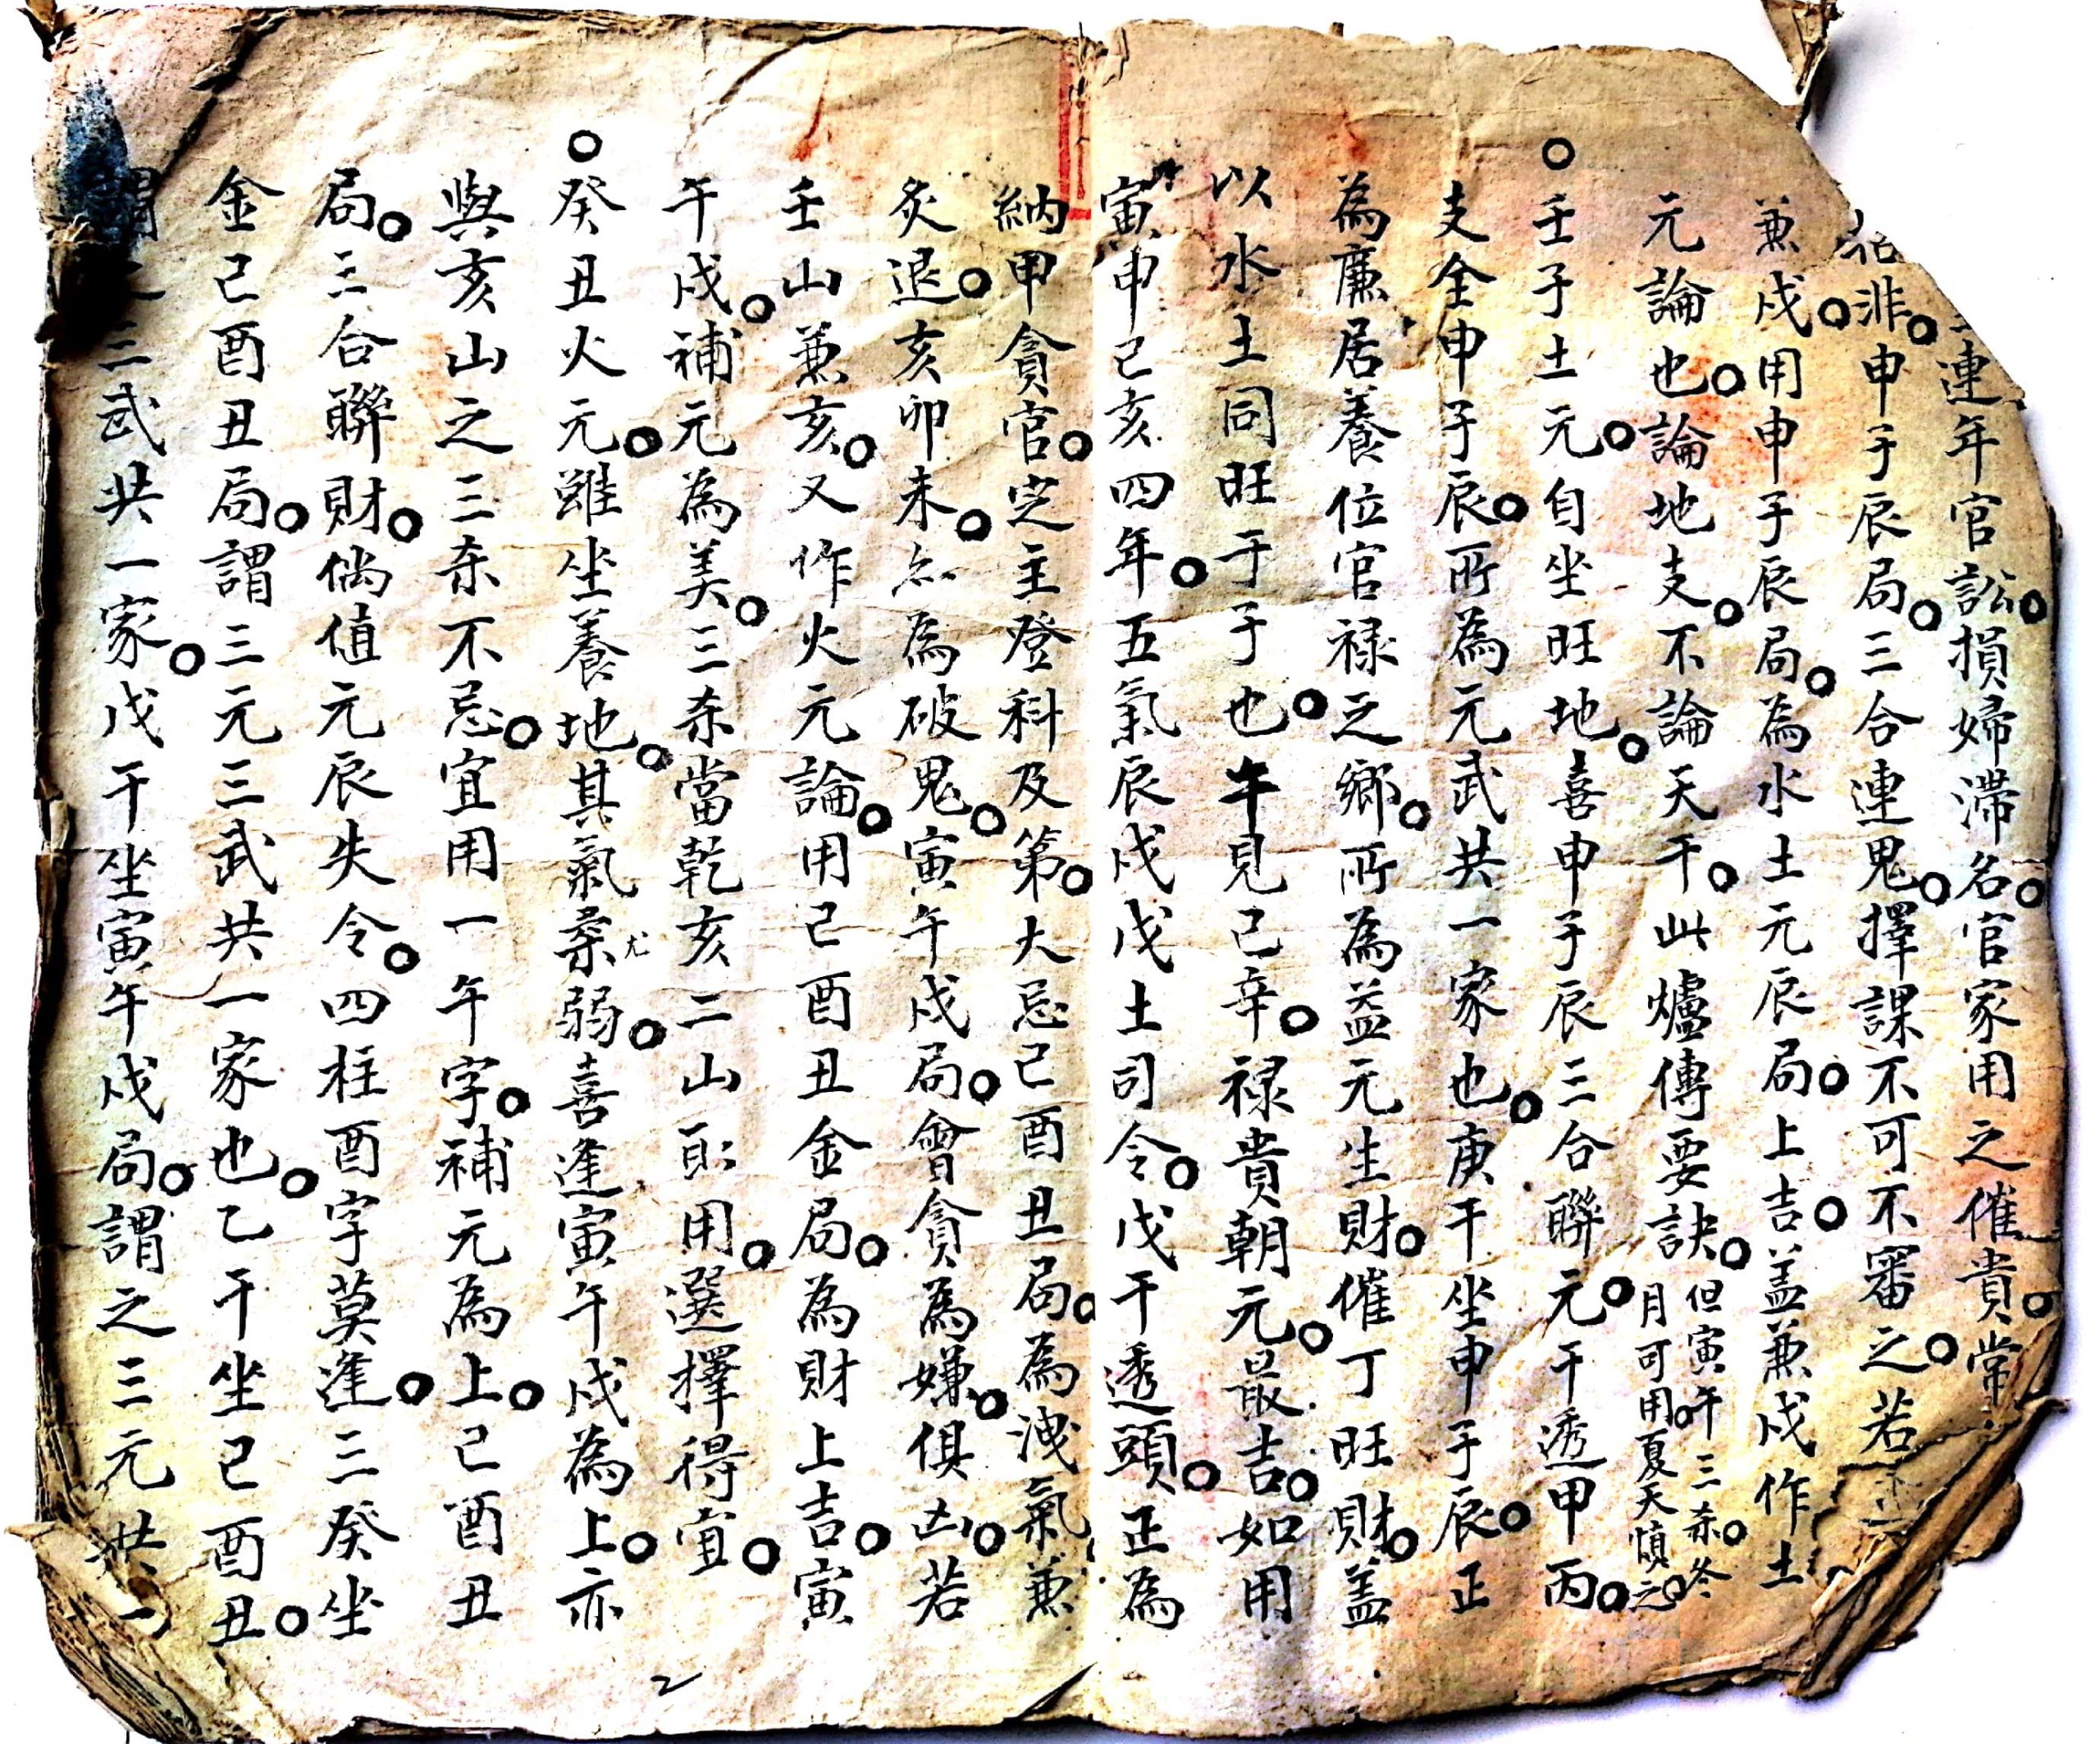 連年官訟。損婦滯名。官家用之催貴。常
非。申子辰局。三合連鬼。擇課不可不審之。若
兼戍。用申子辰局。為水土元辰局。上吉。盖兼戍作土
元論也。論地支。不論天干。此爐傳要訣。但寅午三杀。冬
月可用。夏天慎之。
○壬子土元。自坐旺地。喜申子辰三合聯元。干透甲丙。
支全申子辰。所為元武共一家也。庚干坐申子辰。正
為廉居養位官祿之鄉。所為益元生財。催丁旺財。盖
以水土同旺于子也。午見己辛。祿貴朝元。最吉。如用
寅申己亥四年。五氣辰戍戊土司令。戊干透頭。正為
納甲貪官。定主登科及第。大忌已酉丑局。為洩氣兼
炙退。亥卯未。亦為破鬼。寅午戍局。會貪為嫌。俱凶。若
壬山兼亥。又作火元論。用已酉丑金局。為財上吉。寅
午戍。補元為美。三杀當乾亥二山取用。選擇得宜。
○癸丑火元。雖坐養地。其氣柔尤弱。喜逢寅午戍為上。亦
與亥山之三杀不忌。宜用一午字。補元為上。已酉丑
局。三合聯財。倘值元辰失令。四柱酉字莫逢。三癸坐
金已酉丑局。謂三元三武共一家也。乙干坐已酉丑。
三武共一家。戊干坐寅午戍局。謂之三元共一